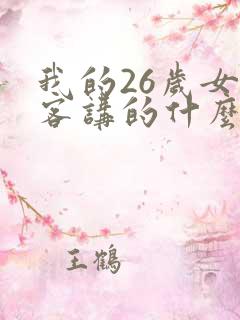 我的26歲女
客講的什麼
王鶴